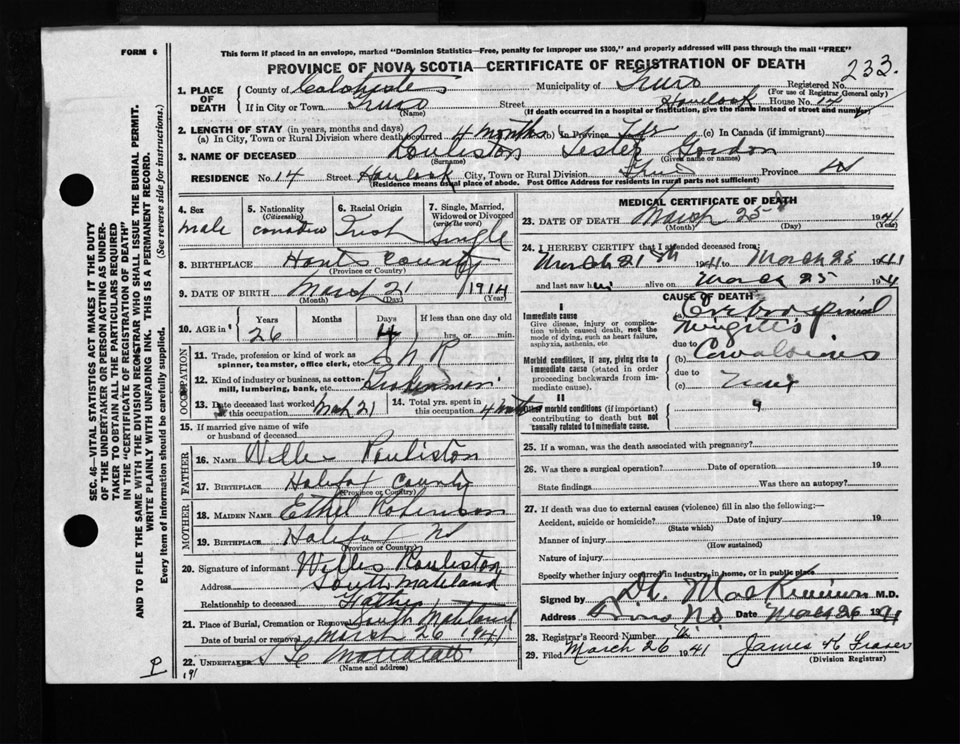 FORM 6
This form if placed in an envelope, marked "Dominion Statistics—Free, penalty for improper use $300," and properly addressed will pass through the mail "FREE"
PROVINCE OF NOVA SCOTIA—CERTIFICATE OF REGISTRATION OF DEATH
233.
1. PLACE OF DEATH
County of Colchester Municipality of Truro Registered No.
(For use of Registrar General only)
If in City or Town Truro Street Havelock House No. 14
(Name) (If death occurred in a hospital or institution, give the name instead of street and number)
2. LENGTH OF STAY (in years, months and days)
(a) In City, Town or Rural Division where death occurred 4 months (b) in Province (c) In Canada (if immigrant)
3. NAME OF DECEASED Rouliston Lester Gordon
(Surname) (Given name or names)
RESIDENCE No. 14 Street Havelock City, Town or Rural Division Truro Province NS
(Residence means usual place of abode. Post Office Address for residents in rural parts not sufficient)
4. Sex
male
5. Nationality
(Citizenship)
6. Racial Origin
Irish
7. Single, Married, Widowed or Divorced
(write the word)
Single
8. BIRTHPLACE Hants County
(Province or Country)
9. DATE OF BIRTH March 21 1914
(Month) (Day) (Year)
10. AGE in Years Months Days If less than one day old
26 4 hrs. or min.
OCCUPATION
11. Trade, profession or kind of work as spinner, teamster, office clerk, etc. C N R
12. Kind of industry or business, as cotton-mill, lumbering, bank, etc. Brakeman
13. Date deceased last worked at this occupation Mch 21
14. Total yrs. spent in this occupation 4 months
15. If married give name of wife or husband of deceased
FATHER
16. NAME Willis Rouliston
17. BIRTHPLACE Halifax County
(Province or Country)
MOTHER
18. MAIDEN NAME Ethel Robinson
19. BIRTHPLACE Halifax NS
(Province or Country)
20. Signature of informant Willis Rouliston
Address South Maitland
Relationship to deceased Father
21. Place of Burial, Cremation or Removal South Maitland
Date of burial or removal March 26 1941
22. UNDERTAKER
(Name and address)
P
MEDICAL CERTIFICATE OF DEATH
23. DATE OF DEATH March 25 1941
(Month) (Day) (Year)
24. I HEREBY CERTIFY that I attended deceased from:
March 21 1941 to March 25 1941
and last saw him alive on March 25 194
CAUSE OF DEATH
I
Immediate cause
Give disease, injury or complication which caused death, not the mode of dying, such as heart failure, asphyxia, asthenia, etc.
(a) Cerebro spinal
due to
Morbid conditions, if any, giving rise to immediate cause (stated in order proceeding backwards from immediate cause).
(b)
due to
(c)
II
Other morbid conditions (if important) contributing to death but not causally related to immediate cause.
25. If a woman, was the death associated with pregnancy?
26. Was there a surgical operation? Date of operation 19
State findings Was there an autopsy?
27. If death was due to external causes (violence) fill in also the following:—
Accident, suicide or homicide? Date of injury 19
(State which)
Manner of injury
(How sustained)
Nature of injury
Specify whether injury occurred in industry, in home, or in public place
Signed by MacKinnon M.D.
Address Truro NS Date March 26 1941
28. Registrar's Record Number
29. Filed March 26 1941 James H Fraser
(Division Registrar)
SEC. 46—VITAL STATISTICS ACT MAKES IT THE DUTY
OF THE UNDERTAKER OR PERSON ACTING AS UNDER-
TAKER TO OBTAIN ALL THE PARTICULARS REQUIRED
IN THE "CERTIFICATE OF REGISTRATION OF DEATH"
AND TO FILE THE SAME WITH THE DIVISION REGISTRAR WHO SHALL ISSUE THE BURIAL PERMIT.
WRITE PLAINLY WITH UNFADING INK. THIS IS A PERMANENT RECORD.
Every item of information should be carefully supplied. (See reverse side for instructions.)